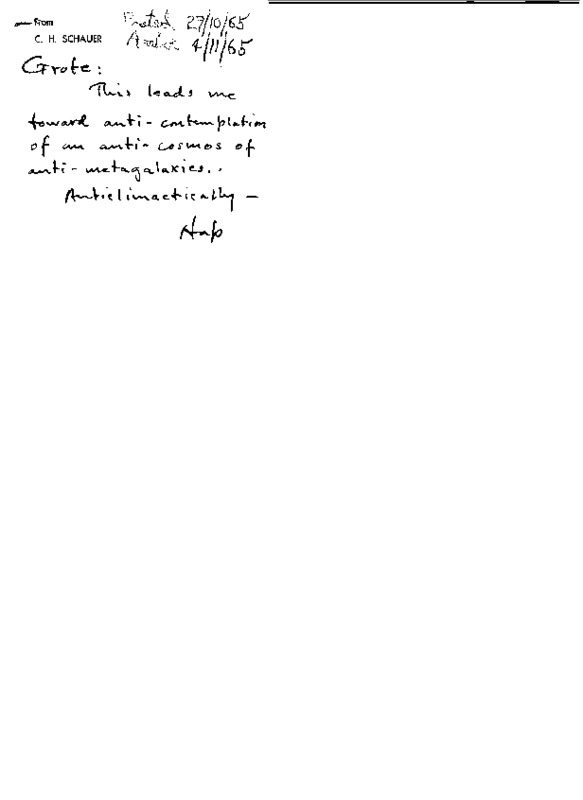 From
C. H. SCHAUER
Posted 27/10/65
4/11/65
Grote:
This leads me
toward anti-contemplation
of an anti-cosmos of
anti-metagalaxies..
Anticlimactically —
Hap